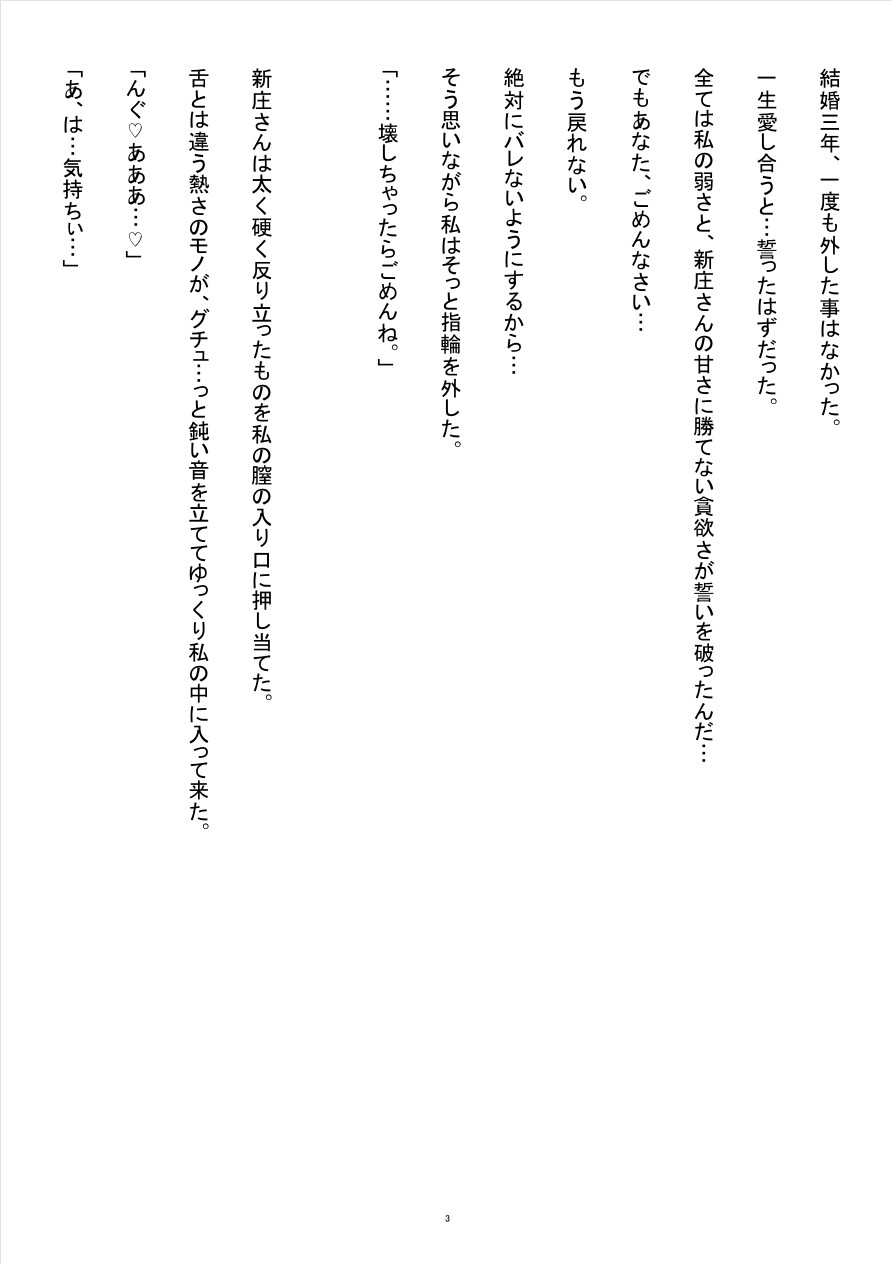 結婚三年、一度も外した事はなかった。
一生愛し合うと…誓ったはずだった。
全ては私の弱さと、新庄さんの甘さに勝てない貪欲さが誓いを破ったんだ…
でもあなた、ごめんなさい…
もう戻れない。
絶対にバレないようにするから…
そう思いながら私はそっと指輪を外した。
「……壊しちゃったらごめんね。」
新庄さんは太く硬く反り立ったものを私の膣の入り口に押し当てた。
舌とは違う熱さのモノが、グチュ…っと鈍い音を立ててゆっくり私の中に入って来た。
「んぐ♡あああ…♡」
「あ、は…気持ちぃ…」
3